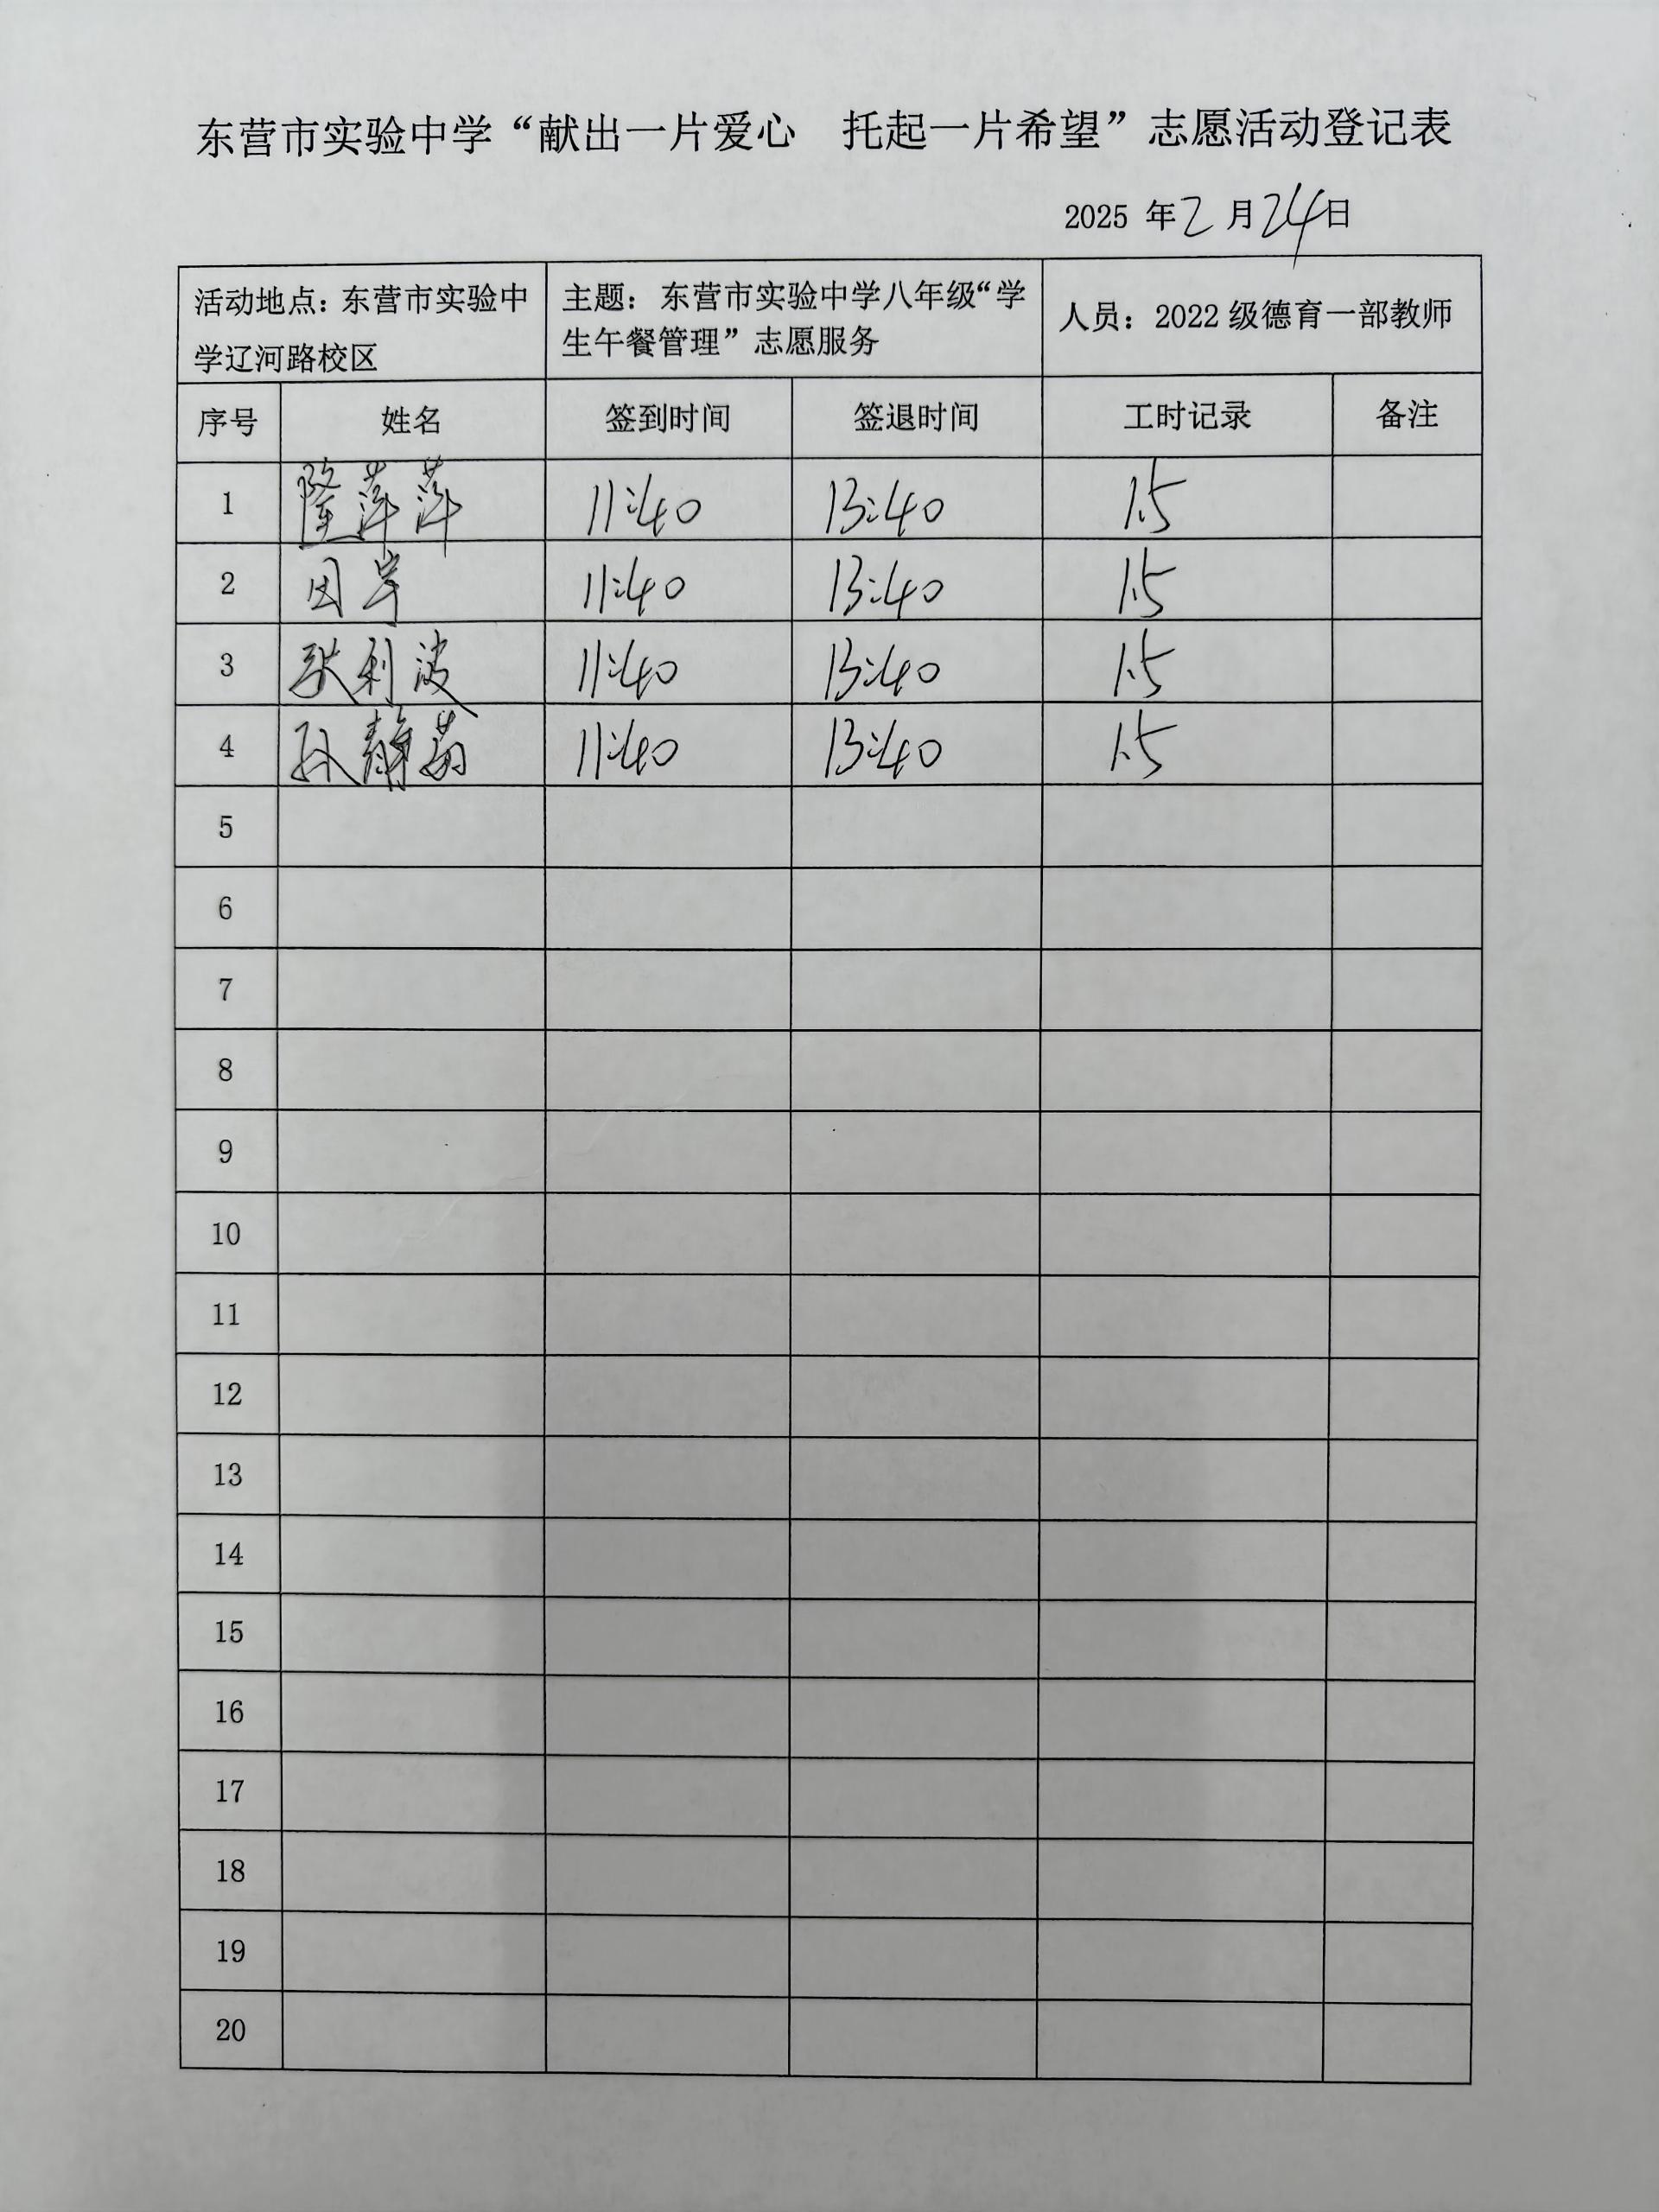 东营市实验中学“献出一片爱心　托起一片希望”志愿活动登记表
2025 年 2 月 24 日
活动地点：东营市实验中
学辽河路校区
主题：东营市实验中学八年级“学
生午餐管理”志愿服务
人员：2022 级德育一部教师
序号 姓名 签到时间 签退时间 工时记录 备注
1 隆萍萍 11:40 13:40 1.5
2 11:40 13:40 1.5
3 耿利波 11:40 13:40 1.5
4 孙静 11:40 13:40 1.5
5
6
7
8
9
10
11
12
13
14
15
16
17
18
19
20